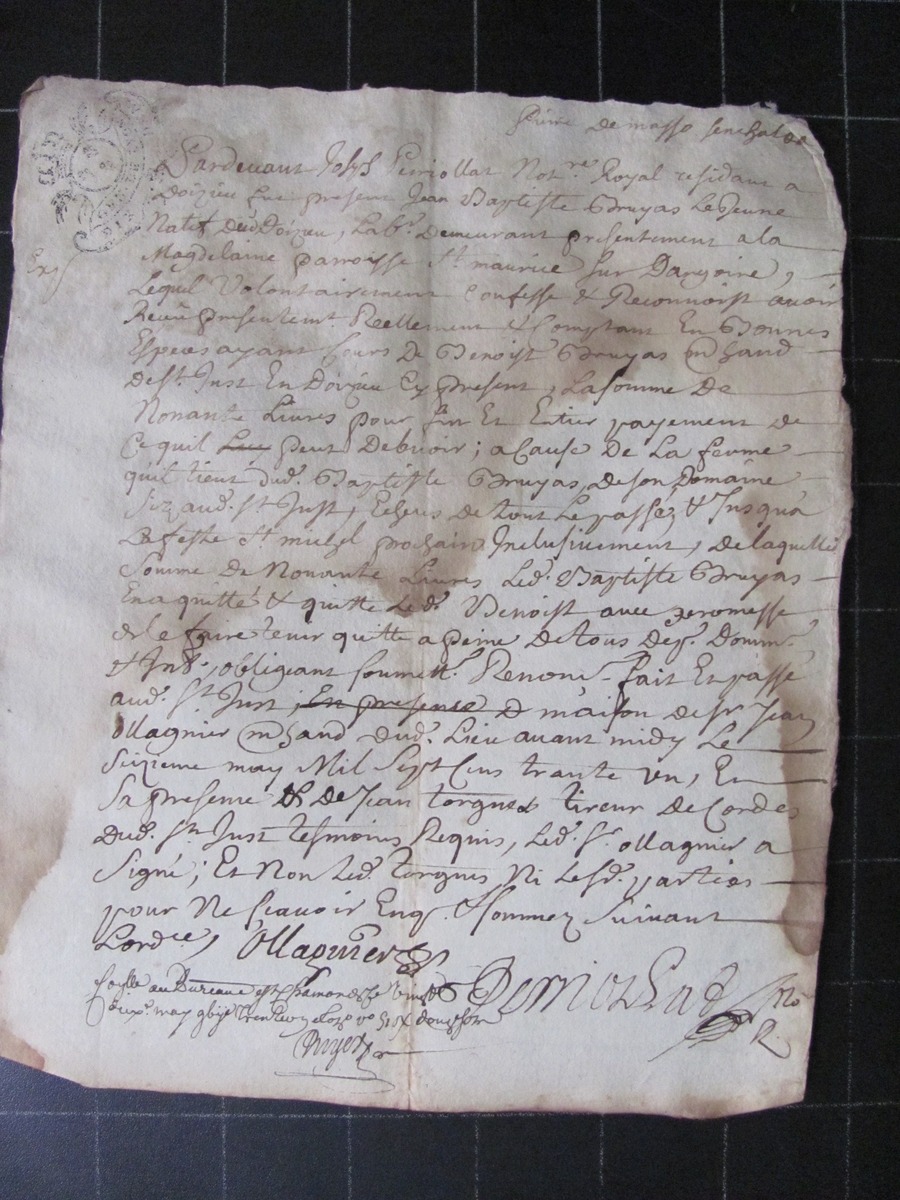 de masso senechal
Pardevant Joseph Perriollat Not.re Royal residant a
Doizieu fut present Jean Baptiste Bruyas Le Jeune
Natif dud Doizieu, Lab.r Demeurant presentement a la
Magdelaine parroisse St. maurice sur Dargoire,
Lequel Volontairement Confesse & Reconnoist avoir
Receu presentemt. Reellement & Comptant En Bonnes
Especes ayant Cours De Benoist Bruyas mchand
de St. Just En Doizieu Cy present, La somme De
Nonante Livres pour fin Et Entier payement de
Ce quil peut Debvoir; a Cause De La ferme
quil tient dud. Baptiste Bruyas, de son Domaine
Siz aud. St Just, Echeus de tout Le passéz & Jusqua
La feste St michel prochain Inclusivement, de laquelle
Somme De Nonante Livres Led. Baptiste Bruyas
En a quitté & quitte Led. Benoist avec promesse
de le faire tenir quitte a peine De tous Dep. Domm.
& Int., obligeant soumett. Renonc. fait Et passé
aud. St. Just, En presence D maison de Sr Jean
Ollagnier mchand dud. Lieu avant midy Le
Seizieme may Mil Sept Cens trante un, En
Sa presence & De Jean torgues tireur De Cordes
Dud. St. Just tesmoins Requis, Led. Sr. ollagnier a
Signé; Et Non Led. torgues Ni Lesd. parties
pour Ne scavoir Enq. & sommez Suivant
Lord.ce, Ollagnier
Perriollat No.re
Collé au Bureau de St Chamond Le vingt
may
R.